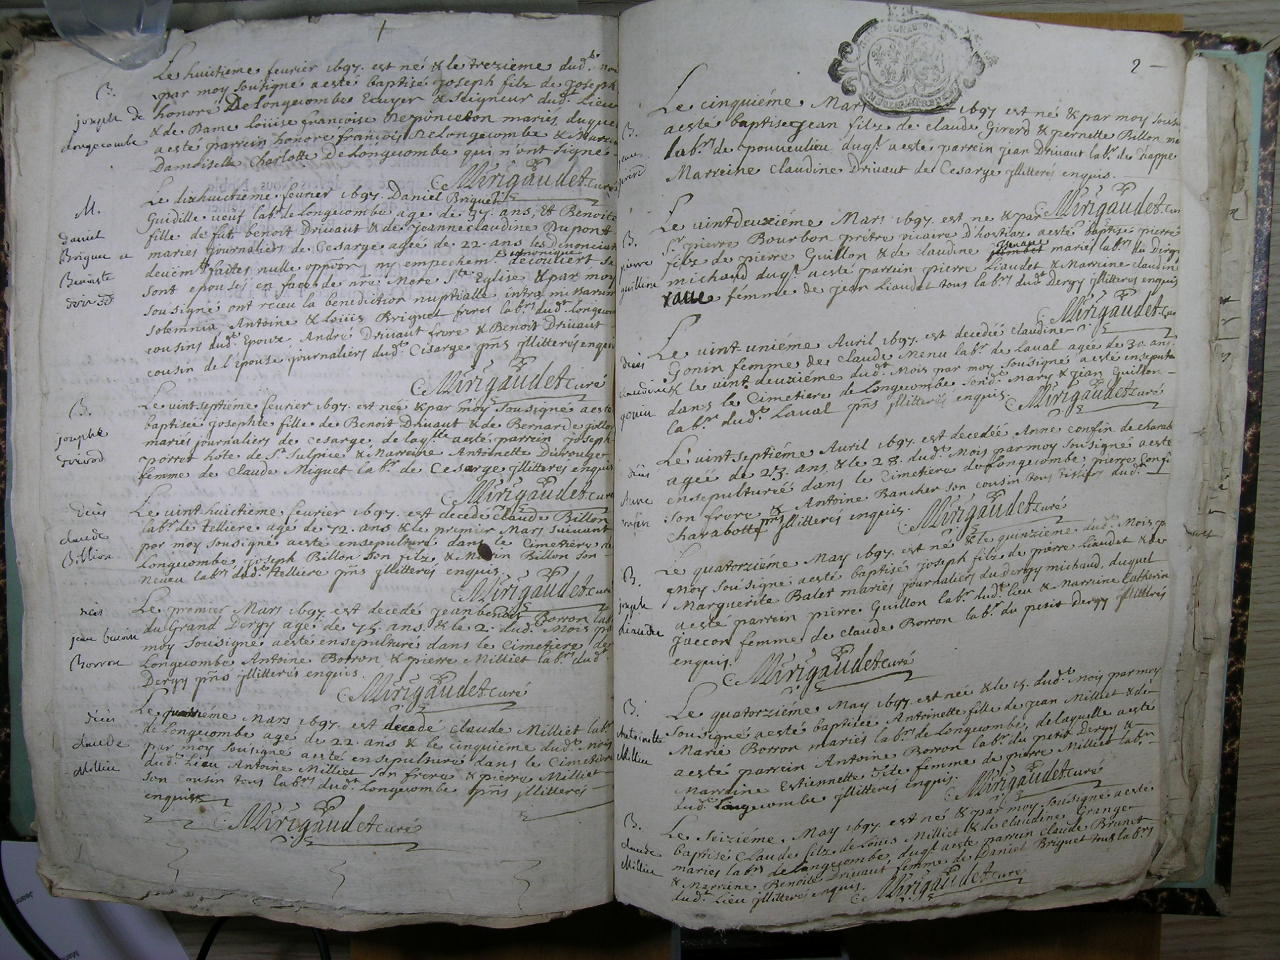 Le huitiéme feurier 1697. est né & le trezieme dud.
par moy sousigné a esté baptisé joseph filz de joseph
B.
joseph de
Longecombe
honoré De Longecombes Ecuyer & Seigneur dud. Lieu
& de Dame loüise françoise
mariés duquel
a esté parrein honoré françois De Longecombe & Marreine
Damoiselle Charlotte De Longecombe qui n'ont signés
Mirigaudet curé
M.
daniel
Briguet
Benoiste
Le dixhuitieme feurier 1697. Daniel Briguet
Guidille ueuf lab.r de longecombe agé de 37 ans, Et Benoite
fille de fût benoit Driuaut & de jeanne claudine Dupont
mariés journaliers de Cesarge agée de 22 ans les dénonciat
deüem.t faittes nulle oppoôn ny empechem.t canonique decouuert se
sont epousés en face de n̄re Mere S.te Eglise & par moy
sousigné ont receu la benediction nuptialle intra missarum
solemnia Antoine & loüis Briguet freres lab.rs dud. Longecombe
cousins dud. Epoux, André Driuaut frere & Benoit Driuaut
cousin de l'épouse journaliers dud. Cesarge p̄ns jllitterés enquis
Mirigaudet curé
B.
josephte
Le uintseptiéme feurier 1697. est née & par moy sousigné a esté
baptisée josephte fille de Benoit Driuaut & de Bernarde
mariés journaliers de Cesarge, de laq.lle a esté parrein joseph
porret hote de S.t Sulpice & Marreine Antoinette
femme de Claude Miguet lab.r de Cesarge jllitterés enquis
Mirigaudet curé
Déces
claude
Billion
Le uint huitiéme feurier 1697. est decedé Claude Billon
lab.r de telliere agé de 72 ans & le premier Mars suiuant
par moy sousigné a esté ensepulturé dans le Cimetiere de
Longecombe joseph Billon son filz & Billon son
neueu lab.rs dud. telliere p̄ns jllitterés enquis.
Mirigaudet curé
déces
jean benoit
Borron
Le premier Mars 1697. est decedé jean benoit Borron lab.
du Grand Dergy agé de 75 ans & le 2. dud. Mois par
moy sousigné a esté ensepulturé dans le Cimetiere de
Longecombe Antoine Borron & pierre Milliet lab.rs dud.
Dergy p̄ns jllitterés enquis
Mirigaudet curé
déces
claude
Milliet
Le Mars 1697. est decedé Claude Milliet lab.r
de longecombe agé de 22 ans & le cinquiéme dud. mois
par moy sousigné a esté ensepulturé dans le Cimetiere
dud. Lieu Antoine Milliet son frere & pierre Milliet
son cousin tous lab.rs dud. Longecombe p̄ns jllitterés
enquis
Mirigaudet curé
2
Le cinquiéme Mars 1697 est né & par moy sousi
B.
a esté baptisé jean filz de claude Girerd & pernette Billon ma
lab.rs de dugl a esté parrein jean Driuaut lab.r de
Marreine claudine Driuaut de Cesarge jllitterés enquis.
Mirigaudet cur
B.
pierre
guillion
Le uintdeuxiéme Mars 1697. est né & par
S.r pierre Bourbon prétre uicaire d'hostiaz a esté baptisé pierre
filz de pierre Guillon & de claudine mariés lab.rs du dergy
michaud dugl a esté parrein pierre Liaudet & Marreine claudine
femme de jean Liaudet tous lab.rs dud. Dergy jllitterés enquis
Mirigaudet cur
déces
claudine
gonin
Le uint unième Auril 1697. est decedée claudine
Gonin femme de claude Menu lab.r de laual agée de 30 ans
& le uint deuziéme dud. Mois par moy sousigné a esté ensepultu
dans le Cimetiere de Longecombe sond. mary & jean Guillon
lab.r dud. Laual p̄ns jllitterés enquis
Mirigaudet curé
déces
Anne
confin
Le uintseptiéme Auril 1697 est decedée Anne confin de charab
agée de 23. ans & le 28. dud. Mois par moy sousigné a esté
ensepulturée dans le Cimetiere de Longecombe, pierre confi
son frere & Antoine Bancher son cousin tous dud.
charabotte p̄ns jllitterés enquis.
Mirigaudet curé
B.
joseph
liaudet
Le quatorziéme May 1697. est né & le quinziéme dud. Mois p
Moy sousigné a esté baptisé joseph filz de pierre Liaudet & de
Marguerite Balet mariés journaliers du dergy michaud, duquel
a esté parrein pierre Guillon lab.r dud. Lieu & Marreine Catherine
jaccon femme de claude Borron lab.r du petit Dergy jllitterés
enquis.
Mirigaudet curé
B.
Antoinette
Milliet
Le quatorziéme May 1697. est née & le 15. dud. mois par moy
sousigné a esté baptisée Antoinette fille de jean Milliet & de
Marie Borron mariés lab.rs de Longecombe, de laquelle a esté
a esté parrein Antoine Borron lab.r du petit Dergy &
Marreine Estiennette femme de pierre Milliet lab.r
dud. Longecombe jllitterés enquis.
Mirigaudet curé
B.
claude
Milliet
Le seiziéme May 1697. est né & par moy sousigné a esté
baptisé Claude filz de Louis Milliet & de claudine Granger
mariés lab.rs de longecombe, dugl a esté parrein claude Brunet
& Marreine Benoite Driuaut femme de Daniel Briguet tous lab.rs
dud. Lieu jllitterés enquis.
Mirigaudet curé